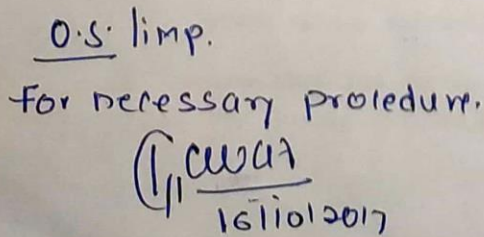 O.S. limp.
for necessary procedure.
16/10/2017